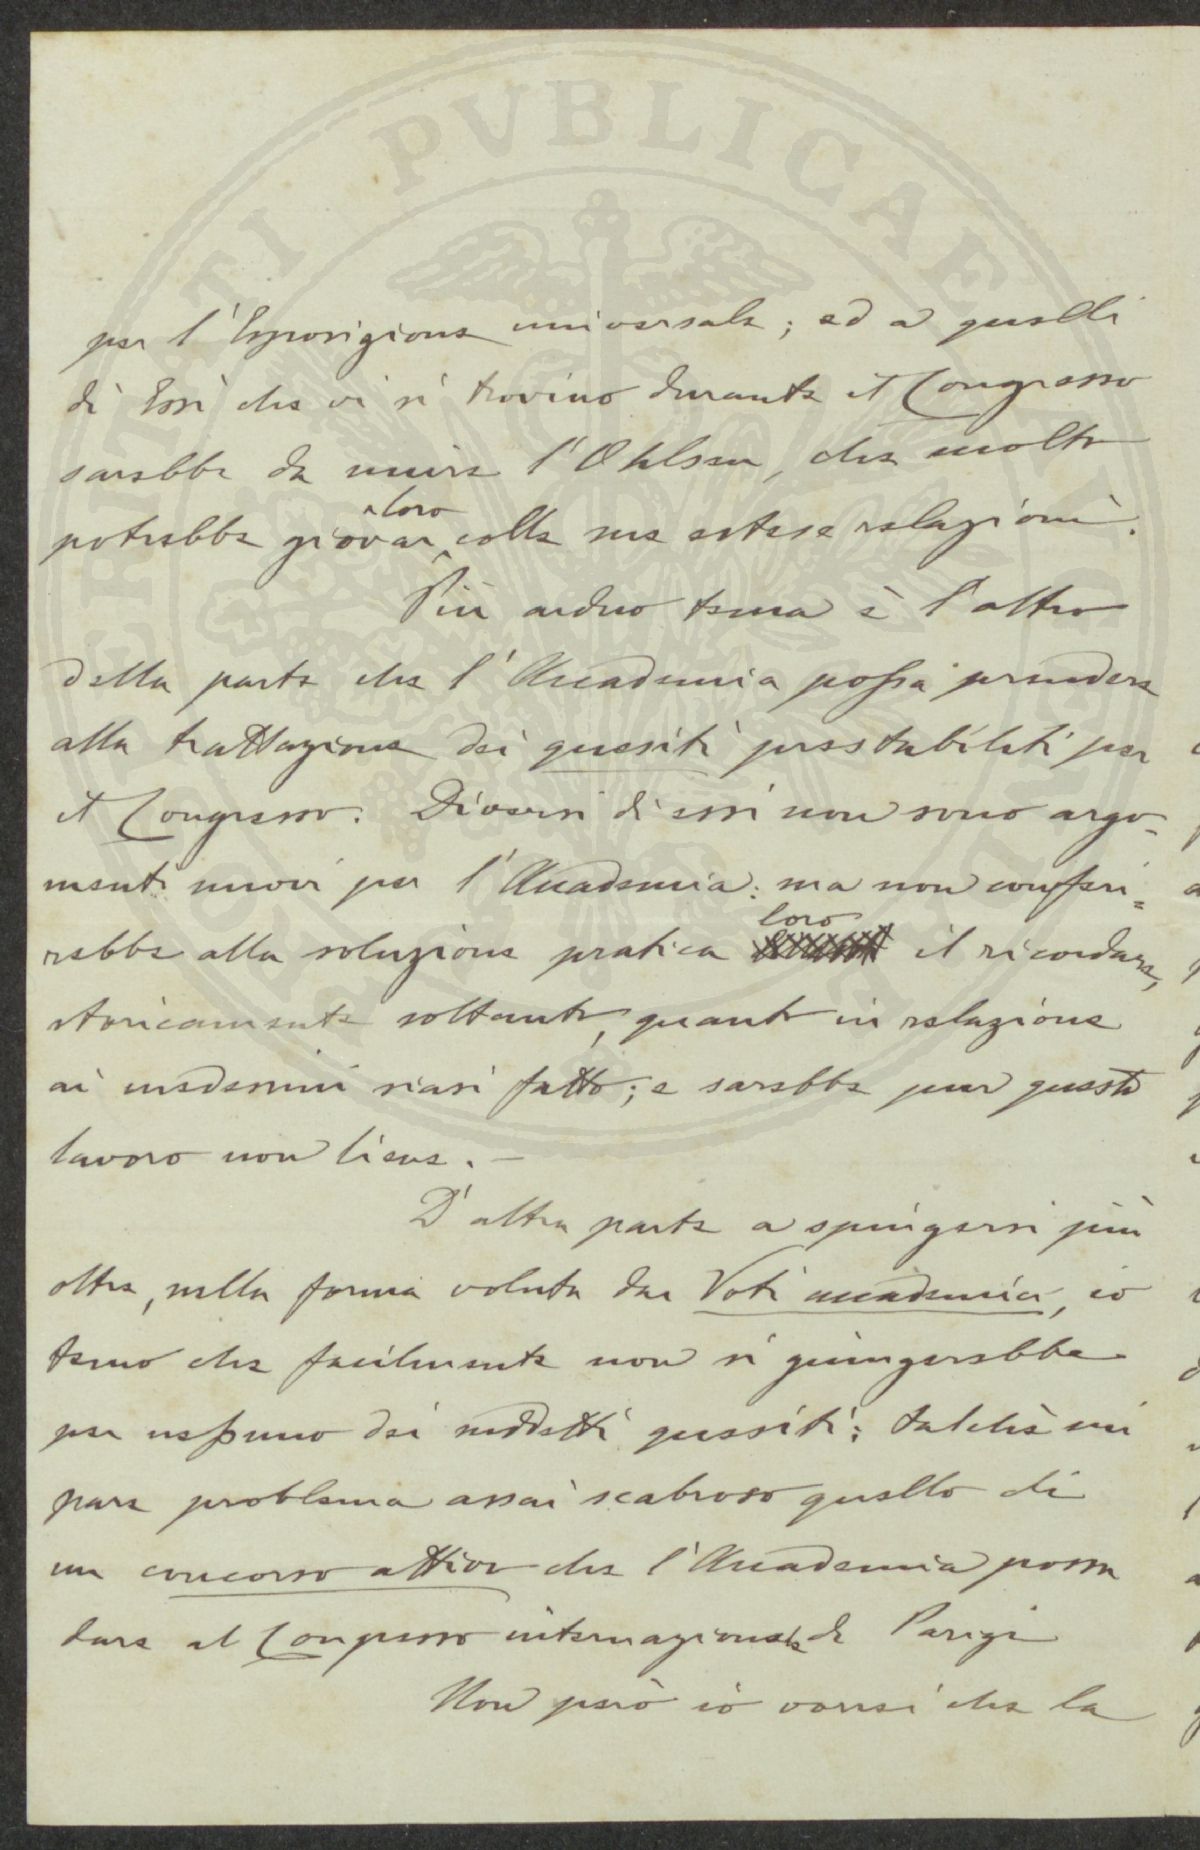 per l'Esposizione universale; ed a quelli
di Essi che vi si trovino durante il Congresso
sarebbe da unire l'Ohlsen, che molto
potrebbe giovar loro colle sue estese relazioni.
Più arduo tema è l'altro
della parte che l'Accademia possa prendere
alla trattazione dei quesiti prestabiliti per
il Congresso. Diversi di essi non sono argo-
menti nuovi per l'Accademia: ma non conferi=
rebbe alla soluzione pratica loro il ricordare,
storicamente soltanto, quanto in relazione
ai medesimi siasi fatto; e sarebbe pur questo
lavoro non lieve. –
D'altra parte a spingersi più
oltre, nella forma voluta dai Voti accademici, io
temo che facilmente non si giungerebbe
per nessuno dei suddetti quesiti; talchè mi
pare problema assai scabroso quello di
un concorso attivo che l'Accademia possa
dare al Congresso internazionale di Parigi
Non però io vorrei che la
PVBLICAE